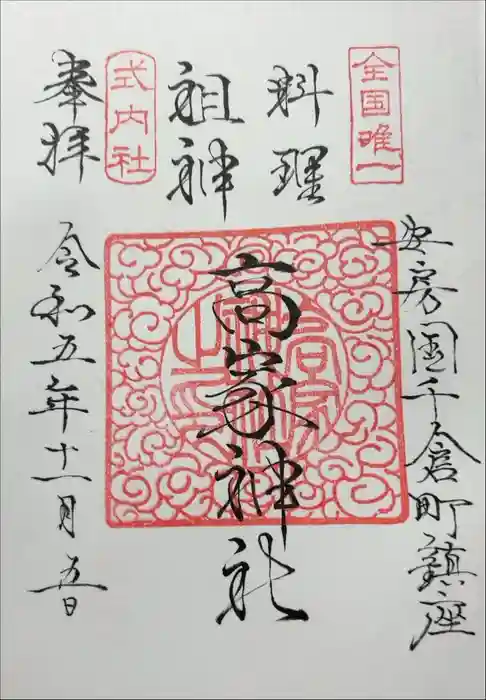 全国唯一
安房国千倉町鎮座
料理
祖神
高家神社
式内社
奉拝
令和五年十一月五日